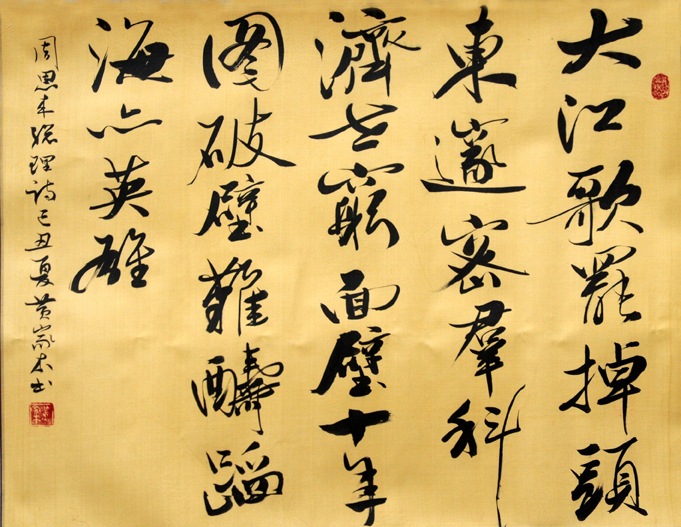 大江歌罷掉頭
東邃密羣科
濟世窮面壁十年
圖破壁難醻蹈
海亦英雄
周恩来總理詩己丑夏黄木书